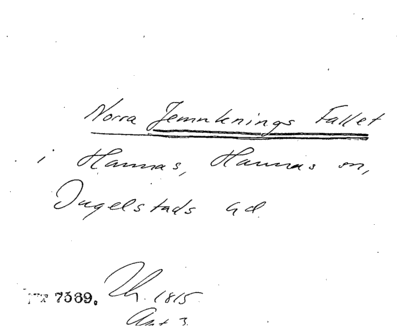 Norra Jemnknings Fallet
i Hannas, Hannas sn,
Ingelstads hd.
7389. Th. 1815.
Ant 3.